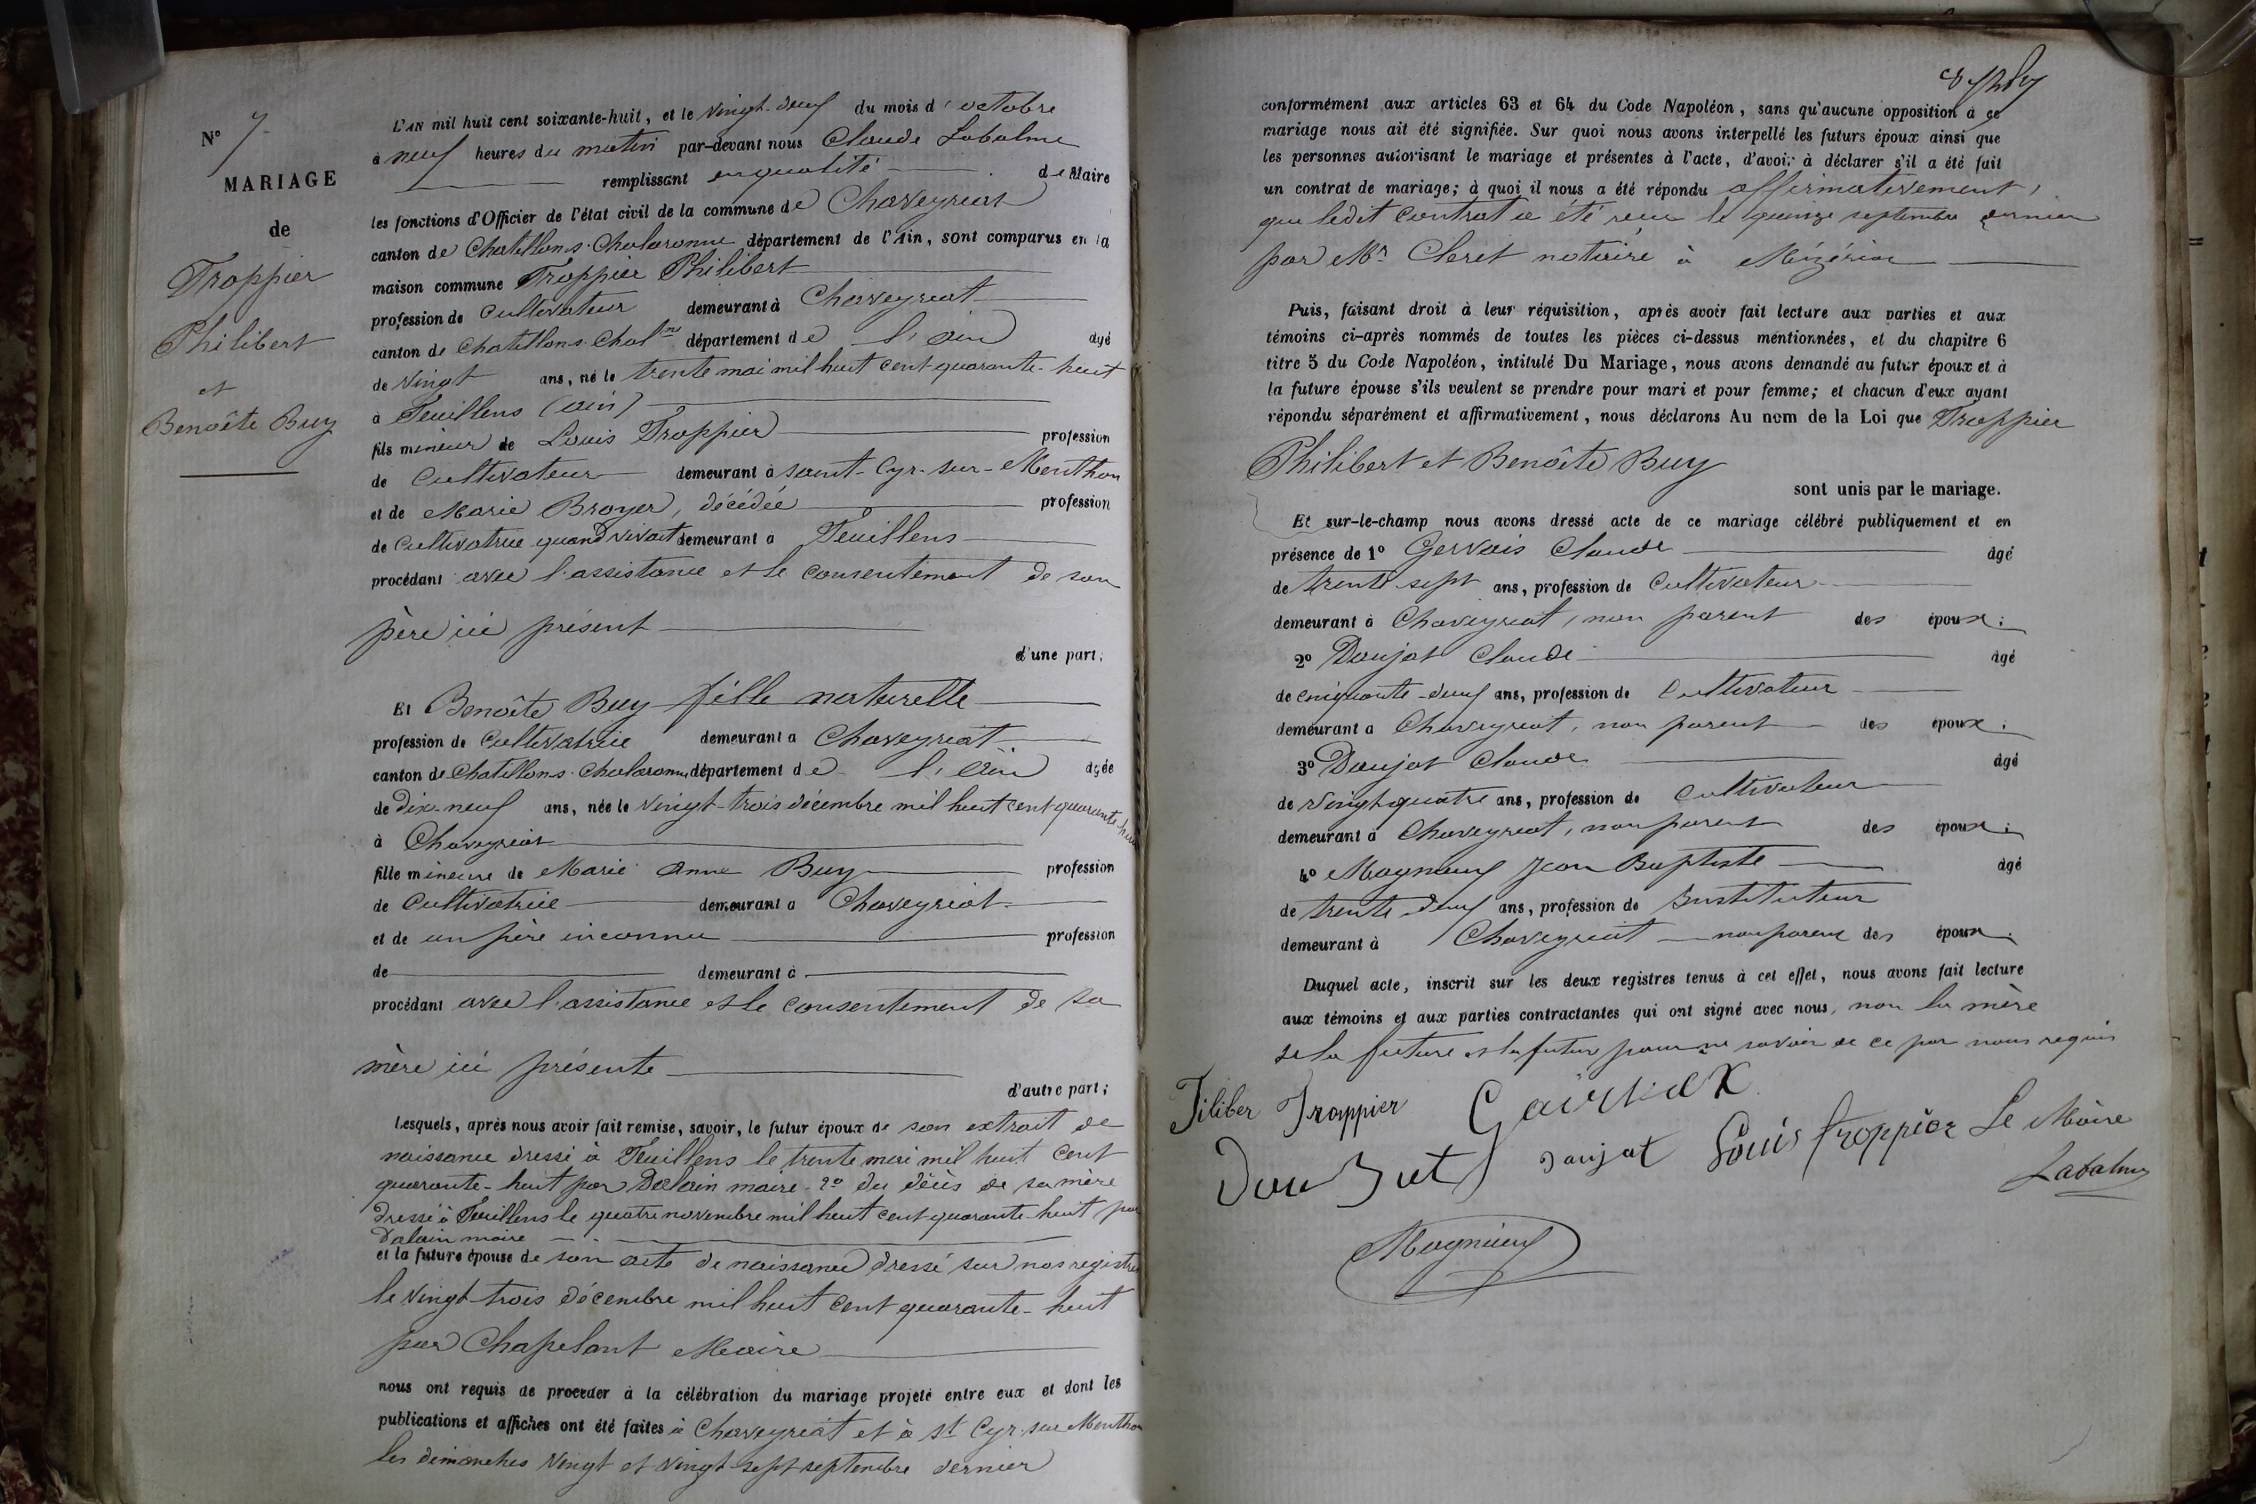 N° 7
MARIAGE
de
Troppier
Philibert
et
Benoîte Buy
L'AN mil huit cent soixante-huit, et le vingt-deux du mois d'octobre
à neuf heures du matin par-devant nous Claude Labalme
remplissant en qualité de Maire
les fonctions d'Officier de l'état civil de la commune de Chaveyriat
canton de Chatillon-s-Chalaronne département de l'Ain, sont comparus en la
maison commune Troppier Philibert
profession de cultivateur demeurant à Chaveyriat
canton de Chatillon-s-Chal.ne département de l'ain âgé
de vingt ans, né le trente mai mil huit cent quarante-huit
à Feuillens (ain)
fils mineur de Louis Troppier profession
de cultivateur demeurant à saint-Cyr-sur-Menthon
et de Marie Broyer, décédée profession
de cultivatrice quand vivait demeurant à Feuillens
procédant avec l'assistance et le consentement de son
père ici présent
d'une part;
Et Benoîte Buy fille naturelle
profession de cultivatrice demeurant à Chaveyriat
canton de Chatillon-s-Chalaronne département de l'Ain âgée
de dix-neuf ans, née le vingt-trois décembre mil huit cent quarante-huit
à Chaveyriat
fille mineure de Marie Anne Buy profession
de cultivatrice demeurant à Chaveyriat
et de un père inconnu profession
de demeurant à
procédant avec l'assistance et le consentement de sa
mère ici présente
d'autre part;
Lesquels, après nous avoir fait remise, savoir, le futur époux de son extrait de
naissance dressé à Feuillens le trente mai mil huit cent
quarante-huit par Dalain maire. 2° du décès de sa mère
dressé à Feuillens le quatre novembre mil huit cent quarante-huit par
Dalain maire
et la future épouse de son acte de naissance dressé sur nos registres
le vingt-trois décembre mil huit cent quarante-huit
par Chapelant Maire
nous ont requis de procéder à la célébration du mariage projeté entre eux et dont les
publications et affiches ont été faites à Chaveyriat et à St Cyr-sur-Menthon
les dimanches vingt et vingt-sept septembre dernier
conformément aux articles 63 et 64 du Code Napoléon, sans qu'aucune opposition à ce
mariage nous ait été signifiée. Sur quoi nous avons interpellé les futurs époux ainsi que
les personnes autorisant le mariage et présentes à l'acte, d'avoir à déclarer s'il a été fait
un contrat de mariage; à quoi il nous a été répondu affirmativement,
que ledit contrat a été reçu le quinze septembre dernier
par Mr Cleret notaire à Mézériat
Puis, faisant droit à leur réquisition, après avoir fait lecture aux parties et aux
témoins ci-après nommés de toutes les pièces ci-dessus mentionnées, et du chapitre 6
titre 5 du Code Napoléon, intitulé Du Mariage, nous avons demandé au futur époux et à
la future épouse s'ils veulent se prendre pour mari et pour femme; et chacun d'eux ayant
répondu séparément et affirmativement, nous déclarons Au nom de la Loi que Troppier
Philibert et Benoîte Buy
sont unis par le mariage.
Et sur-le-champ nous avons dressé acte de ce mariage célébré publiquement et en
présence de 1° Gervais Claude âgé
de trente-sept ans, profession de cultivateur
demeurant à Chaveyriat, non parent des époux;
2° Danjat Claude âgé
de cinquante-deux ans, profession de cultivateur
demeurant à Chaveyriat, non parent des époux;
3° Danjat Claude âgé
de vingt-quatre ans, profession de cultivateur
demeurant à Chaveyriat, non parent des époux;
4° Magnieux Jean Baptiste âgé
de trente-deux ans, profession de Instituteur
demeurant à Chaveyriat non parent des époux.
Duquel acte, inscrit sur les deux registres tenus à cet effet, nous avons fait lecture
aux témoins et aux parties contractantes qui ont signé avec nous, non la mère
de la future et la future pour ne savoir de ce par nous requis
Filiber Trappier
Danjat Louis troppier Le Maire
Labalme
Magnieux